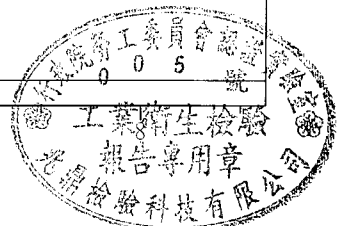 行政院勞工委員會認證實驗室
0 0 5 號
工業衛生檢驗
8
報告專用章
鼎檢驗科技有限公司